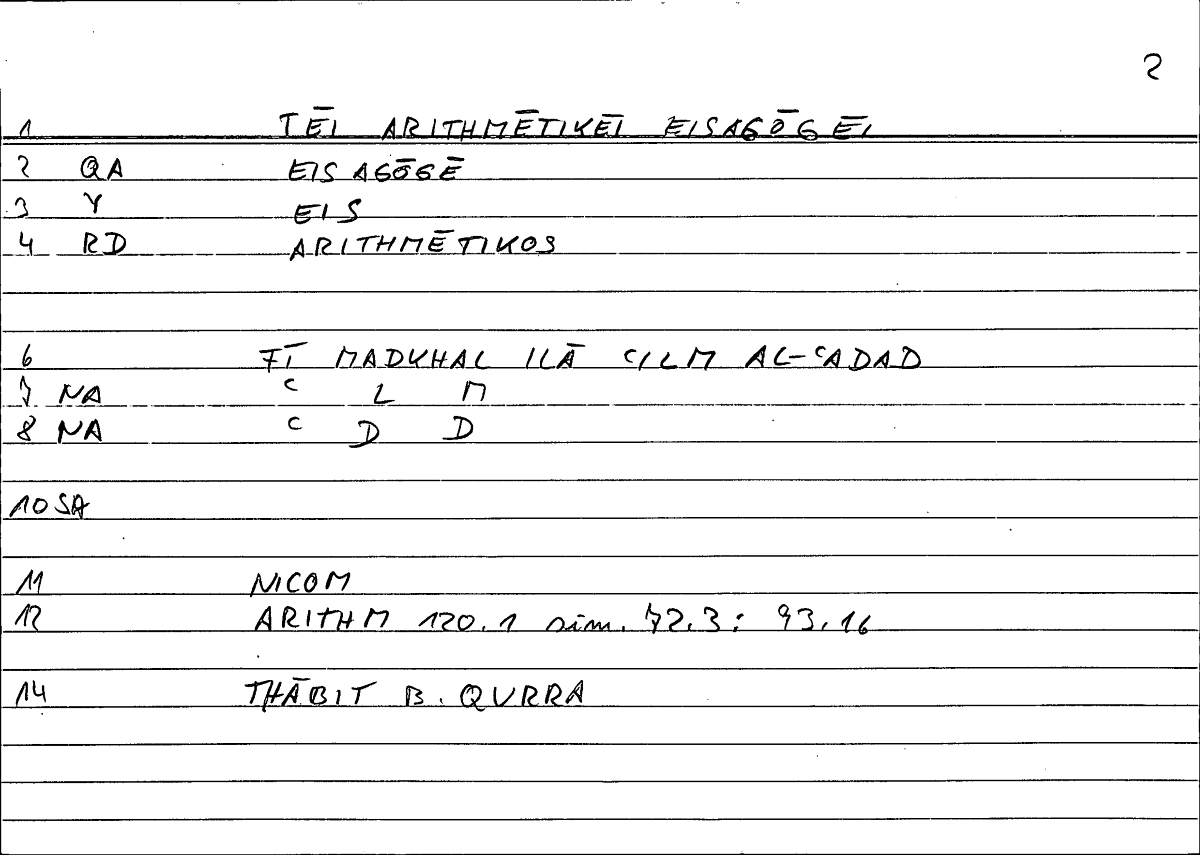 2
1 TĒI ARITHMĒTIKĒI EISAGŌGĒI
2 QA EISAGŌGĒ
3 Y EIS
4 RD ARITHMĒTIKOS
6 FĪ MADKHAL ILĀ ʿILM AL-ʿADAD
7 NA ʿ L M
8 NA ʿ D D
10 SA
11 NICOM
12 ARITHM 120.1 sim. 72.3: 93.16
14 THĀBIT B. QURRA